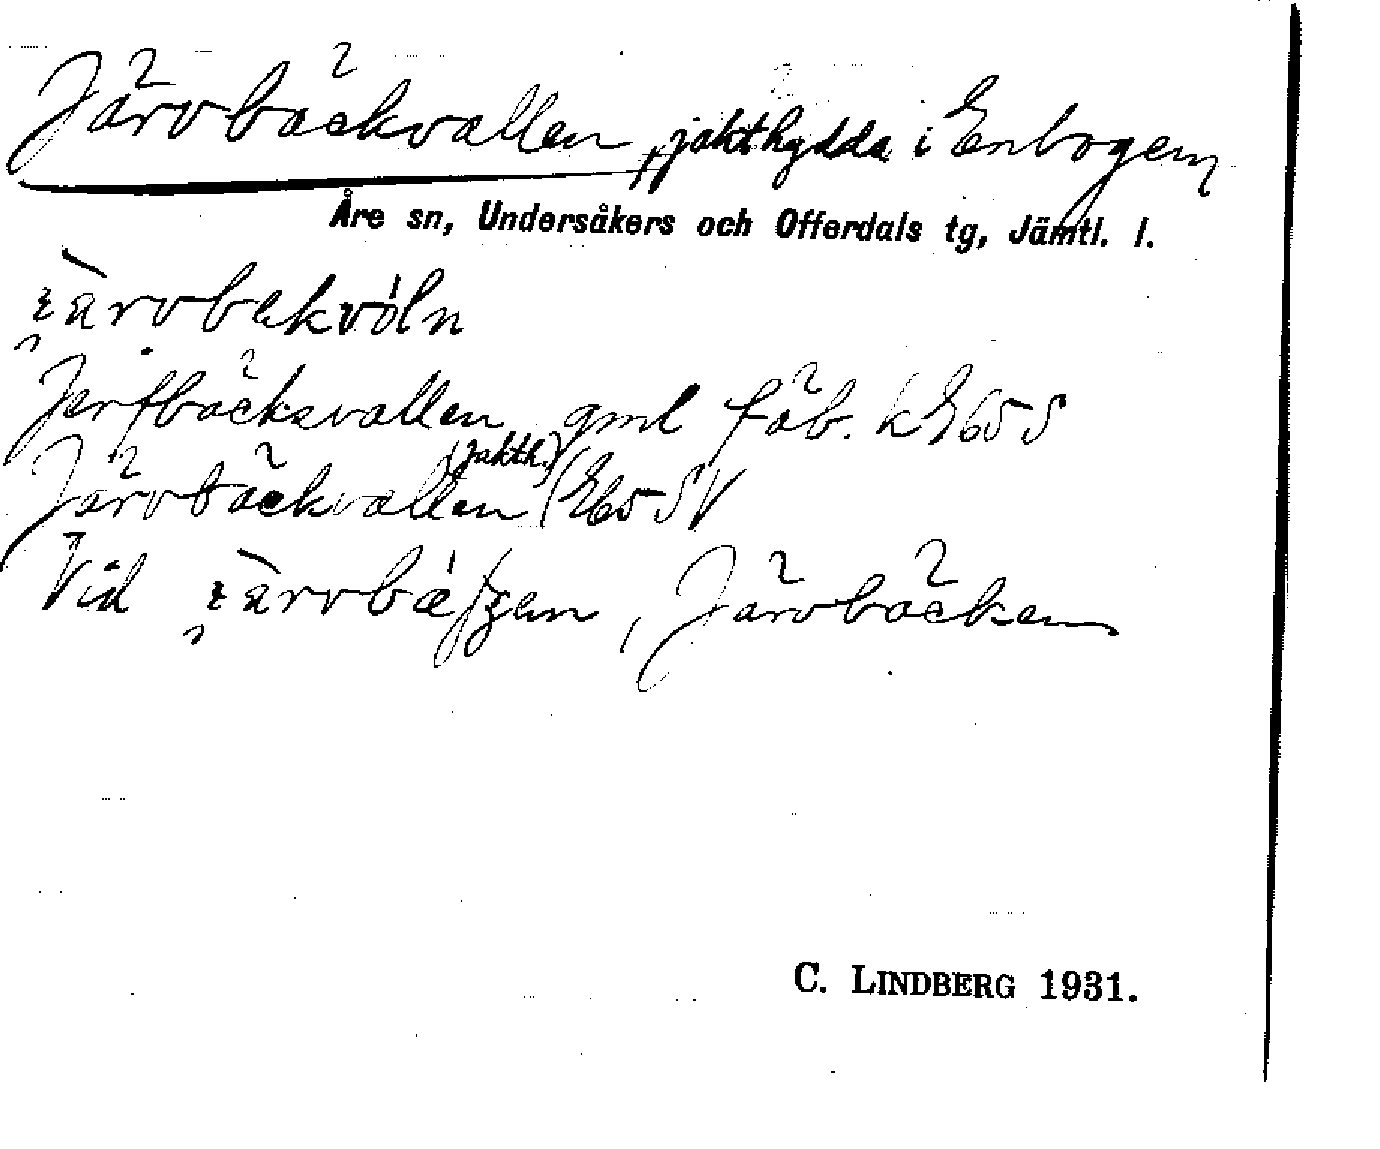 Järvbäckvallen, jakthydda i Enbogen
Åre sn, Undersåkers och Offerdals tg, Jämtl. l.
Jerfbäcksvallen gml fäb. k E65 S
Järvbäckvallen (jakth.) E65 SV
Vid , Järvbäcken
C. LINDBERG 1931.